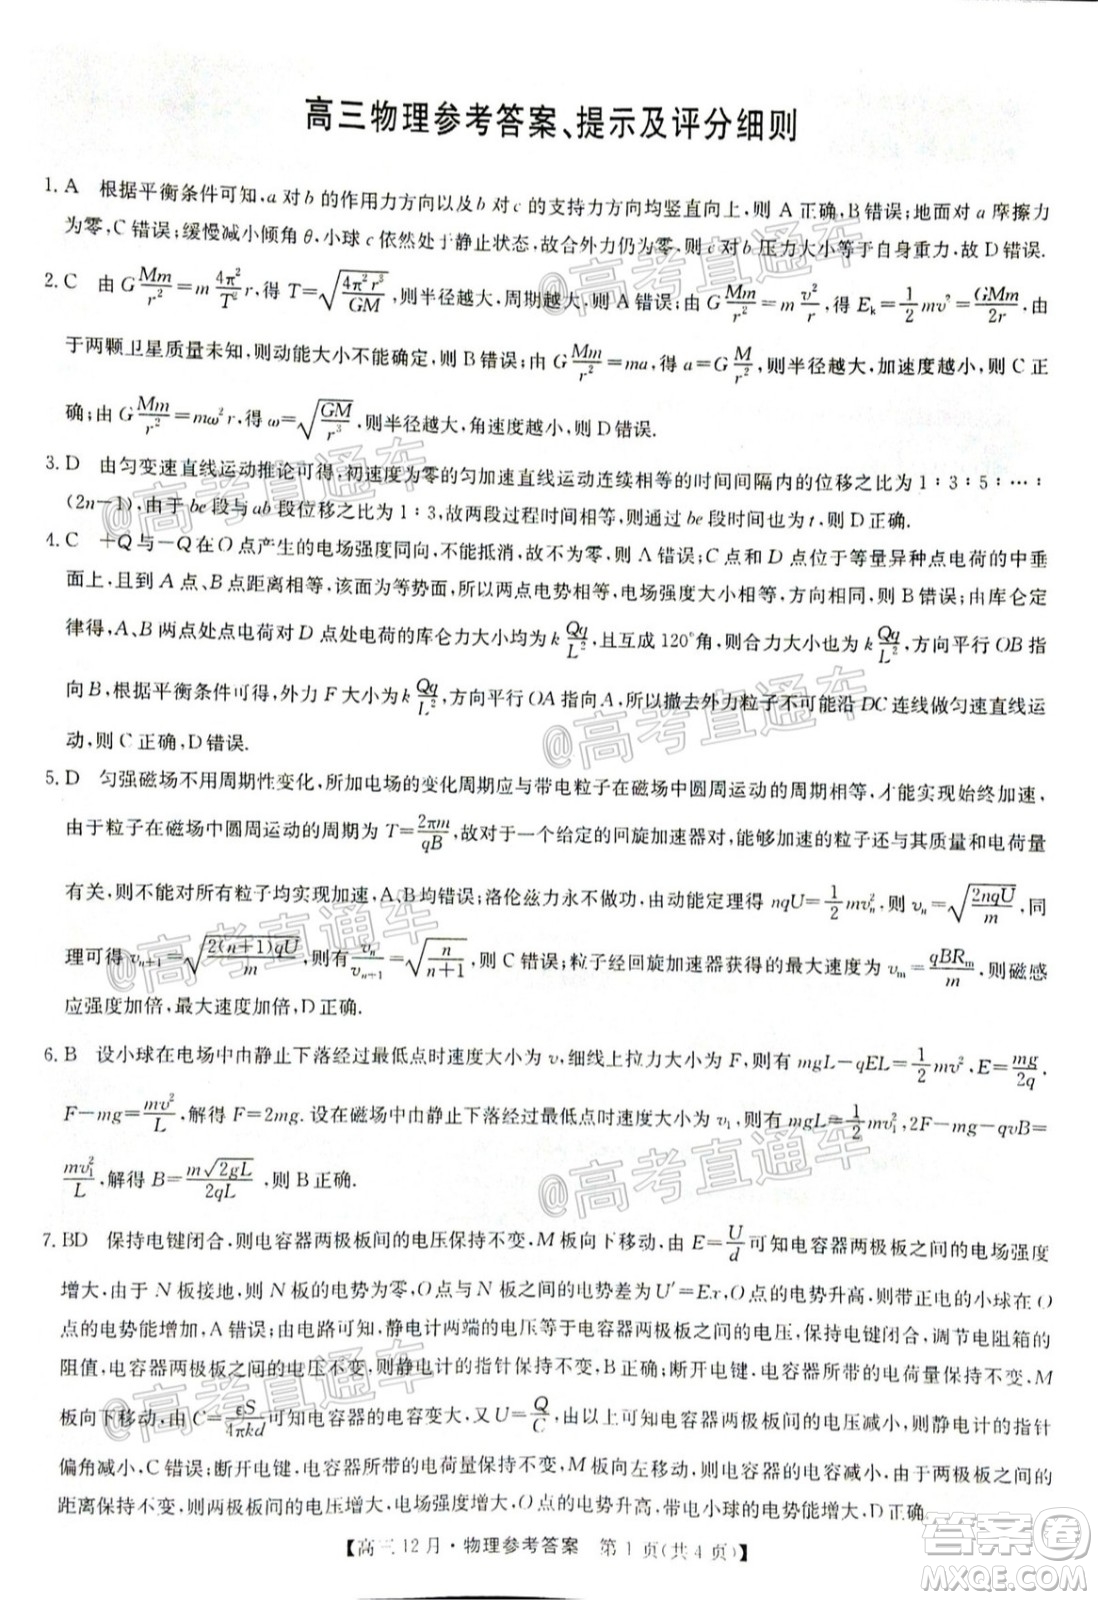 高三物理参考答案、提示及评分细则
1. A 根据平衡条件可知,a 对 b 的作用力方向以及 b 对 c 的支持力方向均竖直向上,则 A 正确,B 错误;地面对 a 摩擦力
为零,C 错误;缓慢减小倾角 θ,小球 c 依然处于静止状态,故合外力仍为零,则 c 对 b 压力大小等于自身重力,故 D 错误.
2. C 由 G\frac{Mm}{r^2}=m\frac{4π^2}{T^2}r,得 T=\sqrt{\frac{4π^2r^3}{GM}},则半径越大,周期越大,则 A 错误;由 G\frac{Mm}{r^2}=m\frac{v^2}{r},得 E_k=\frac{1}{2}mv^2=\frac{GMm}{2r}.由
于两颗卫星质量未知,则动能大小不能确定,则 B 错误;由 G\frac{Mm}{r^2}=ma,得 a=G\frac{M}{r^2},则半径越大,加速度越小,则 C 正
确;由 G\frac{Mm}{r^2}=mω^2r,得 ω=\sqrt{\frac{GM}{r^3}},则半径越大,角速度越小,则 D 错误.
3. D 由匀变速直线运动推论可得,初速度为零的匀加速直线运动连续相等的时间间隔内的位移之比为 1:3:5:…:
(2n-1),由于 bc 段与 ab 段位移之比为 1:3,故两段过程时间相等,则通过 bc 段时间也为 t,则 D 正确.
4. C +Q 与-Q 在 O 点产生的电场强度同向,不能抵消,故不为零,则 A 错误;C 点和 D 点位于等量异种点电荷的中垂
面上,且到 A 点、B 点距离相等,该面为等势面,所以两点电势相等,电场强度大小相等,方向相同,则 B 错误;由库仑定
律得,A、B 两点处点电荷对 D 点处电荷的库仑力大小均为 k\frac{Qq}{L^2},且互成 120°角,则合力大小也为 k\frac{Qq}{L^2},方向平行 OB 指
向 B,根据平衡条件可得,外力 F 大小为 k\frac{Qq}{L^2},方向平行 OA 指向 A,所以撤去外力粒子不可能沿 DC 连线做匀速直线运
动,则 C 正确,D 错误.
5. D 匀强磁场不用周期性变化,所加电场的变化周期应与带电粒子在磁场中圆周运动的周期相等,才能实现始终加速,
由于粒子在磁场中圆周运动的周期为 T=\frac{2πm}{qB},故对于一个给定的回旋加速器对,能够加速的粒子还与其质量和电荷量
有关,则不能对所有粒子均实现加速,A、B 均错误;洛伦兹力永不做功,根据动能定理得 nqU=\frac{1}{2}mv_n^2,则 v_n=\sqrt{\frac{2nqU}{m}},同
理可得 v_{n+1}=\sqrt{\frac{2(n+1)qU}{m}},则有\frac{v_n}{v_{n+1}}=\sqrt{\frac{n}{n+1}},则 C 错误;粒子经回旋加速器获得的最大速度为 v_m=\frac{qBR_m}{m},则磁感
应强度加倍,最大速度加倍,D 正确.
6. B 设小球在电场中由静止下落经过最低点时速度大小为 v,细线上拉力大小为 F,则有 mgL-qEL=\frac{1}{2}mv^2,E=\frac{mg}{2q}.
F-mg=\frac{mv^2}{L},解得 F=2mg.设在磁场中由静止下落经过最低点时速度大小为 v_1,则有 mgL=\frac{1}{2}mv_1^2,2F-mg-qvB=
\frac{mv_1^2}{L},解得 B=\frac{m\sqrt{2gL}}{2qL},则 B 正确.
7. BD 保持电键闭合,则电容器两极板间的电压保持不变,M 板向下移动,由 E=\frac{U}{d}可知电容器两极板之间的电场强度
增大,由于 N 板接地,则 N 板的电势为零,O 点与 N 板之间的电势差为 U′=Ex,O 点的电势升高,则带正电的小球在 O
点的电势能增加,A 错误;由电路可知,静电计两端的电压等于电容器两极板之间的电压,保持电键闭合,调节电阻箱的
阻值,电容器两极板之间的电压不变,则静电计的指针保持不变,B 正确;断开电键,电容器所带的电荷量保持不变,M
板向下移动,由 C=\frac{εS}{4πkd}可知电容器的电容变大,又 U=\frac{Q}{C},由以上可知电容器两极板间的电压减小,则静电计的指针
偏角减小,C 错误;断开电键,电容器所带的电荷量保持不变,M 板向左移动,则电容器的电容减小,由于两极板之间的
距离保持不变,则两极板间的电压增大,电场强度增大,O 点的电势升高,带电小球的电势能增大,D 正确.
【高三12月·物理参考答案 第 1 页(共 4 页)】
@高考直通车
@高考直通车
@高考直通车
@高考直通车
@高考直通车
@高考直通车
答案圈
MXQE.COM